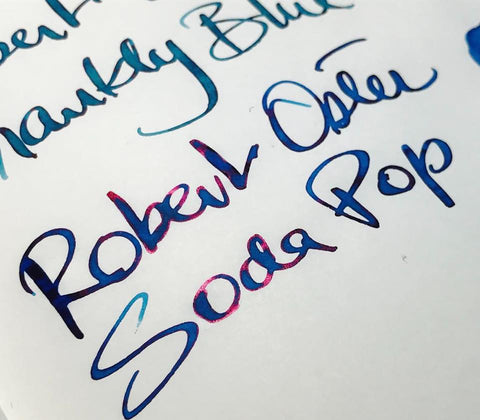 Blue
Robert Oster
Soda Pop